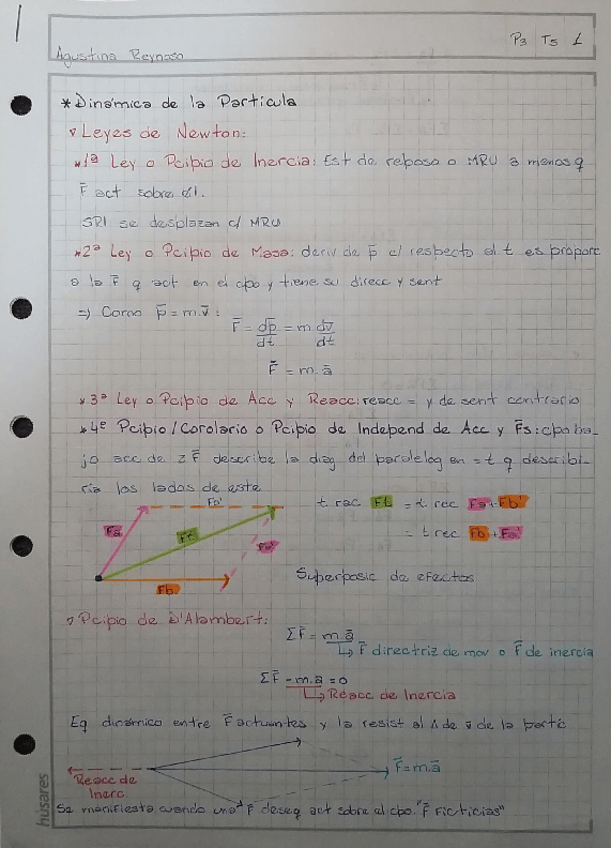 P3 T5 1
Agustina Reynoso
* Dinámica de la Partícula
Leyes de Newton:
*1ª Ley o Pcipio de Inercia: Est de reposo o MRU a menos q
F̄ act sobre él.
SRI se desplazan c/ MRU
*2ª Ley o Pcipio de Masa: deriv de p̄ c/ respecto al t es proporc
a la F̄ q act en el cpo y tiene su direcc y sent
=> Como p̄ = m.v̄ :
F̄ = dp̄/dt = m dv̄/dt
F̄ = m.ā
*3ª Ley o Pcipio de Acc y Reacc: reacc = y de sent contrario
*4º Pcipio/Corolario o Pcipio de Independ de Acc y F̄s: cpo ba_
jo acc de 2 F̄ describe la diag del paralelog en = t q describi_
ría los lados de este
Fb' t rec Ft = t rec Fa + Fb'
Fa Ft Fa' = t rec Fb + Fa'
Fb Superposic de efectos
Pcipio de D'Alambert:
ΣF̄ = m.ā
↳ F̄ directriz de mov o F̄ de inercia
ΣF̄ - m.ā = 0
↳ Reacc de Inercia
Eq dinámico entre F̄ actuantes y la resist al Δ de v̄ de la partíc
F̄ = m.ā
Reacc de
Inerc.
Se manifiesta cuando una F̄ deseq act sobre el cpo. "F̄ Ficticias"
húsares